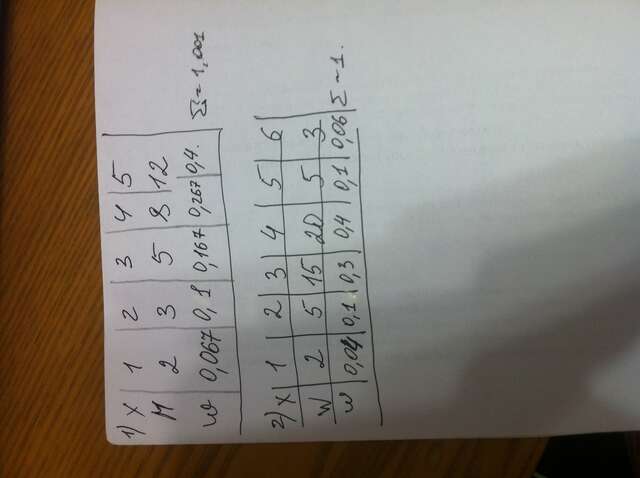 1) X 1 2 3 4 5
M 2 3 5 8 12
W 0,067 0,1 0,167 0,267 0,4. Σ = 1,001
2) X 1 2 3 4 5 6
W 2 5 15 20 5 3
W 0,04 0,1 0,3 0,4 0,1 0,06 Σ ~ 1.